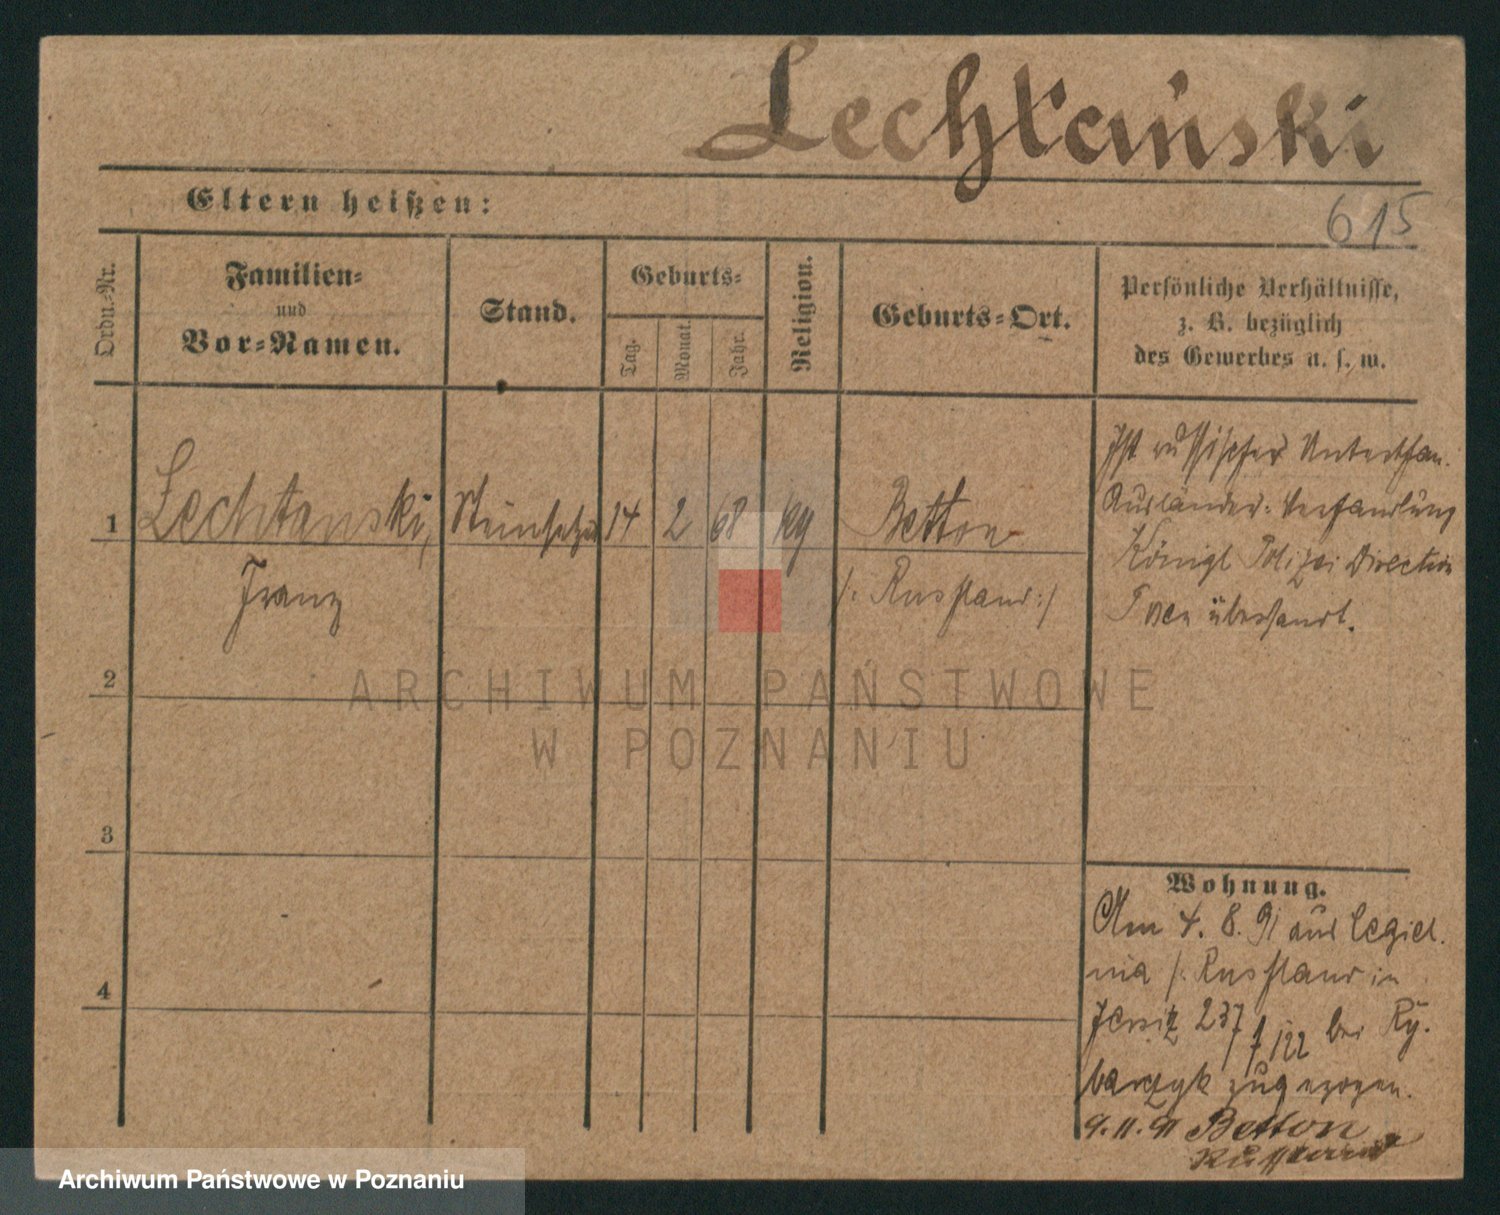 Lechtański
615
Eltern heißen:
Ordn.-Nr.
Familien-
und
Vor-Namen.
Stand.
Geburts-
Tag.
Monat.
Jahr.
Religion.
Geburts-Ort.
Persönliche Verhältnisse,
z. B. bezüglich
des Gewerbes u. s. w.
1
Lechtanski,
Franz
Steinsetzer
14
2
68
Betton
/: Russland :/
Ist russischer Unterthan.
Ausländer-Verhandlung
Königl Polizei Direction
Posen übersandt.
2
3
4
Wohnung.
Am 4. 8. 91 aus Cegiel.
nia /: Russland in
Jersitz 237 / 122 bei Ry.
barczyk zugezogen.
9. 11. 91 Betton
Russland
ARCHIWUM PAŃSTWOWE
W POZNANIU
Archiwum Państwowe w Poznaniu